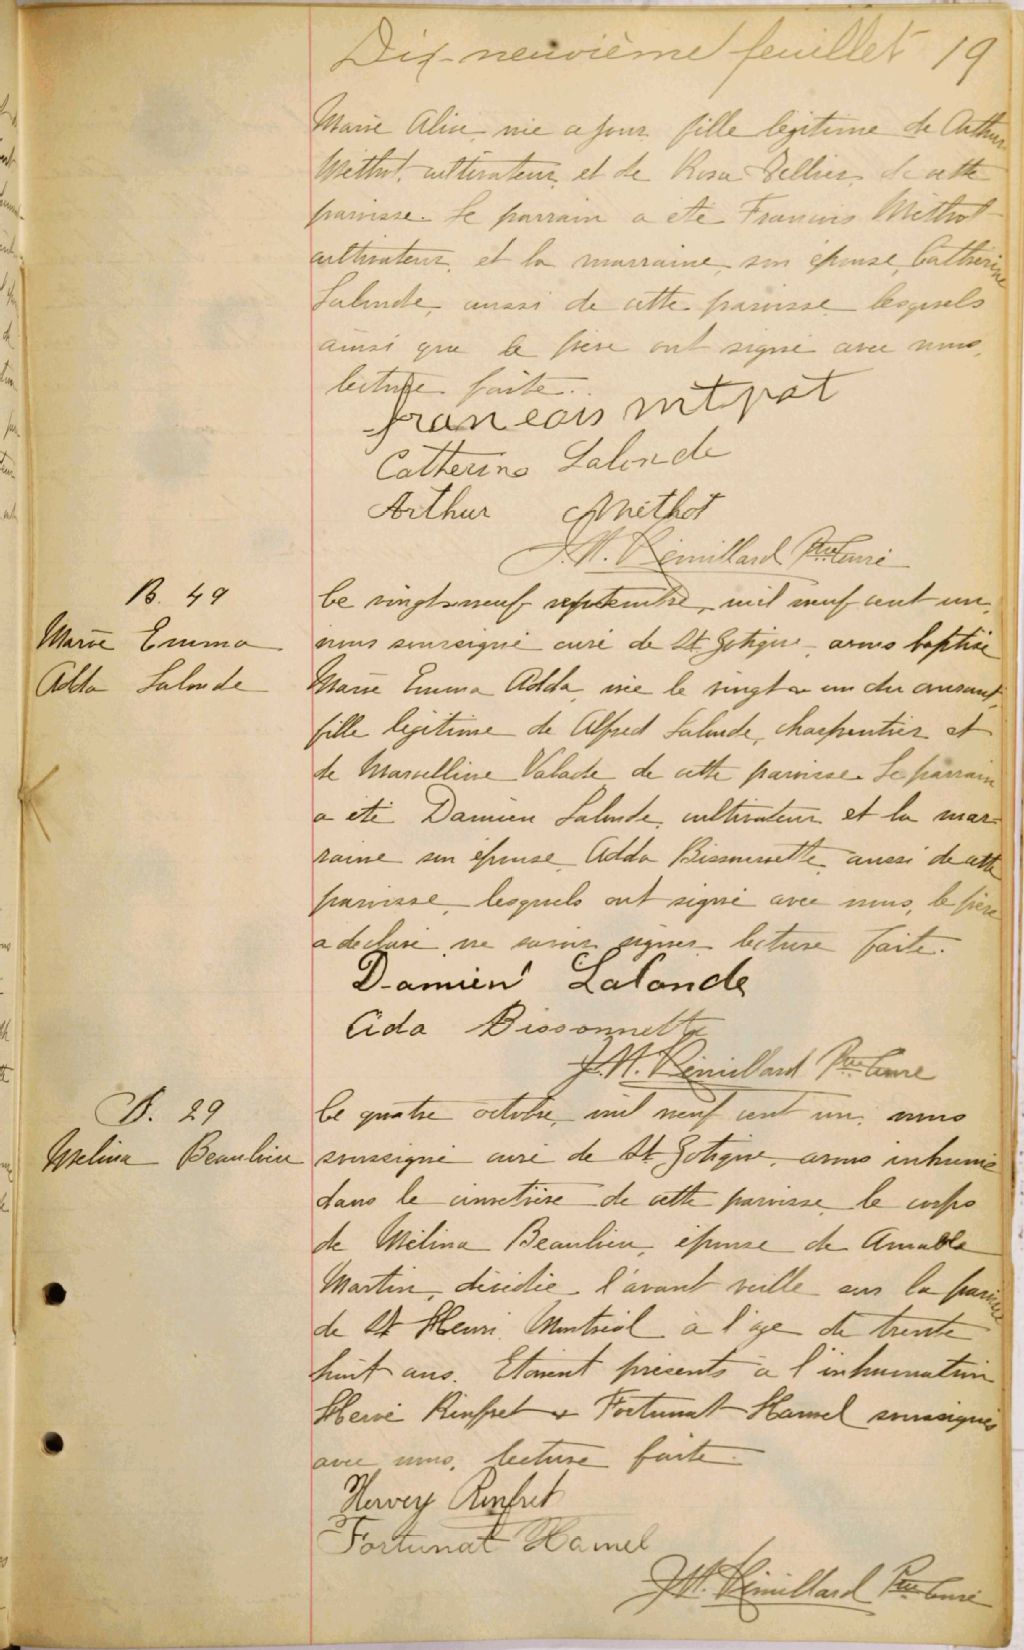 Dix-neuvième feuillet 19
Marie Alice née ce jour fille légitime de Arthur
Méthot, cultivateur, et de Rosa Tellier, de cette
paroisse. Le parrain a été Francois Méthot
cultivateur, et la marraine, son épouse, Catherine
Lalonde, aussi de cette paroisse lesquels
ainsi que le père ont signé avec nous,
lecture faite.
francois
Catherine Lalonde
Arthur Méthot
J.M. Rémillard Ptre Curé
B. 49
Marie Emma
Adda Lalonde
Le vingt-neuf septembre, mil neuf cent un,
nous soussigné curé de St Zotique, avons baptisé
Marie Emma Adda, née le vingt un du courant,
fille légitime de Alfred Lalonde, charpentier et
de Marcelline Valade de cette paroisse. Le parrain
a été Damien Lalonde, cultivateur et la mar-
raine son épouse Adda Bissonnette aussi de cette
paroisse, lesquels ont signé avec nous, le père
a déclaré ne savoir signer lecture faite.
Damien Lalonde
Aida Bissonnette
J.M. Rémillard Ptre Curé
S. 29
Melina Beaulieu
Le quatre octobre, mil neuf cent un, nous
soussigné curé de St Zotique, avons inhumé
dans le cimetière de cette paroisse le corps
de Mélina Beaulieu, épouse de Amable
Martin, décédée l'avant veille sur la paroisse
de St Henri Montréal à l'age de trente
huit ans. Etaient présents à l'inhumation
Hervé Rinfret & Fortunat Hamel soussignés
avec nous, lecture faite
Hervey Rinfret
Fortunat Hamel
J.M. Rémillard Ptre Curé